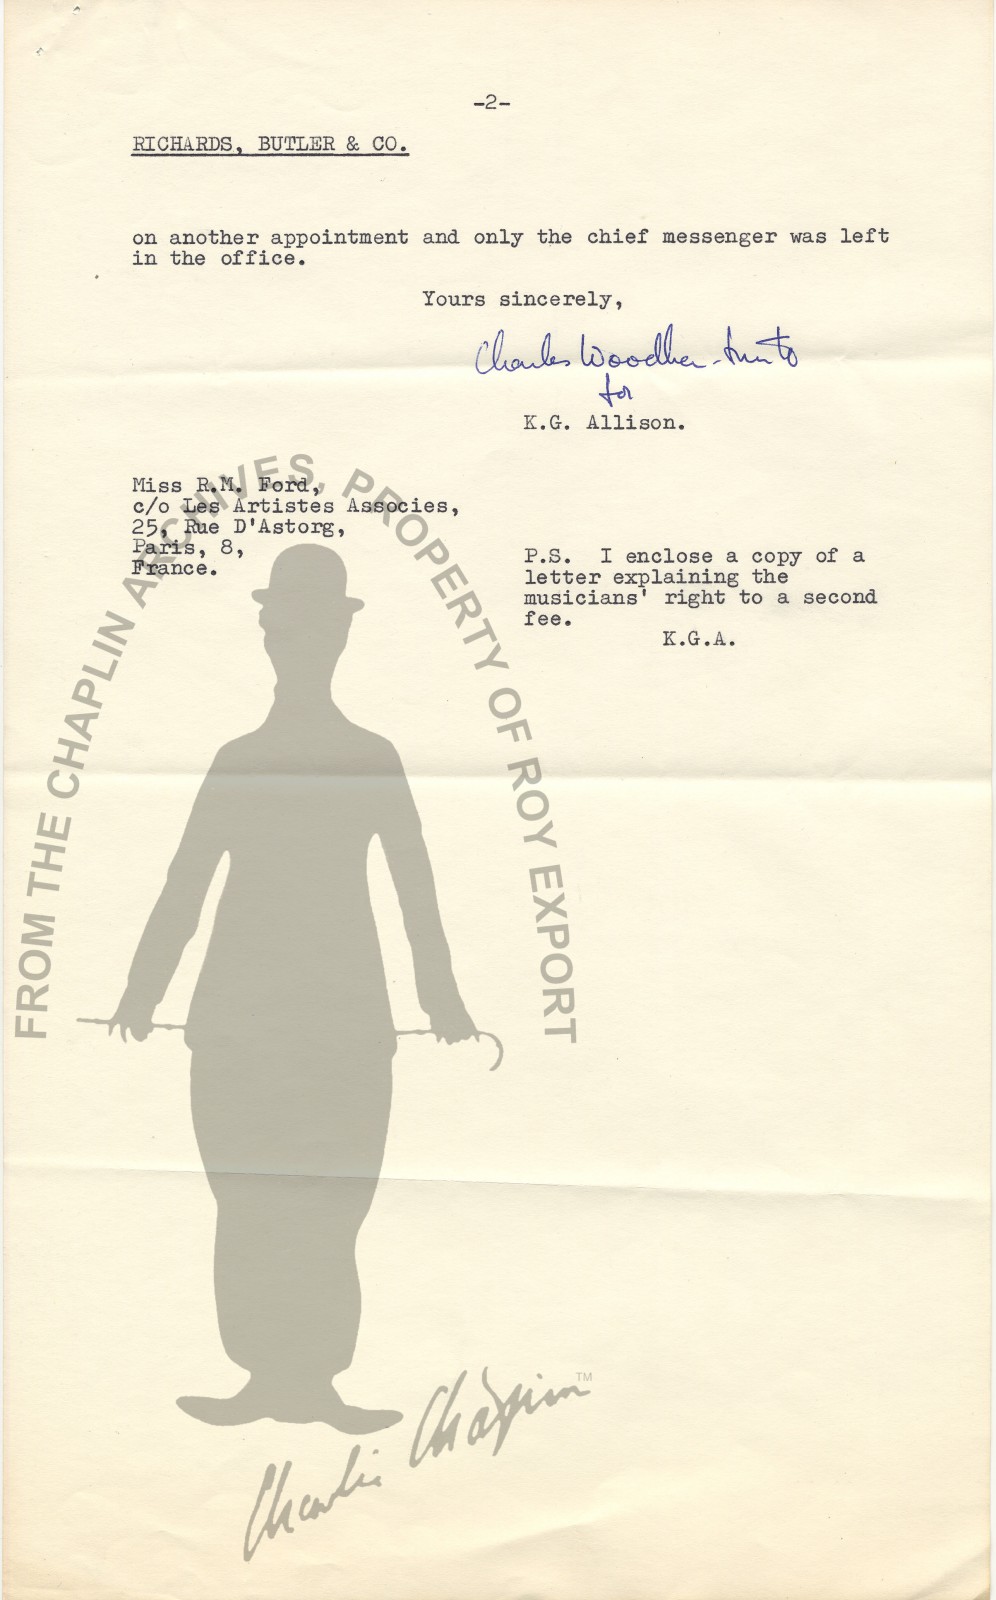 -2-
RICHARDS, BUTLER & CO.
on another appointment and only the chief messenger was left
in the office.
Yours sincerely,
Charles
for
K.G. Allison.
Miss R.M. Ford,
c/o Les Artistes Associes,
25, Rue D'Astorg,
Paris, 8,
France.
P.S. I enclose a copy of a
letter explaining the
musicians' right to a second
fee.
K.G.A.
FROM THE CHAPLIN ARCHIVES, PROPERTY OF ROY EXPORT
Charlie Chaplin TM